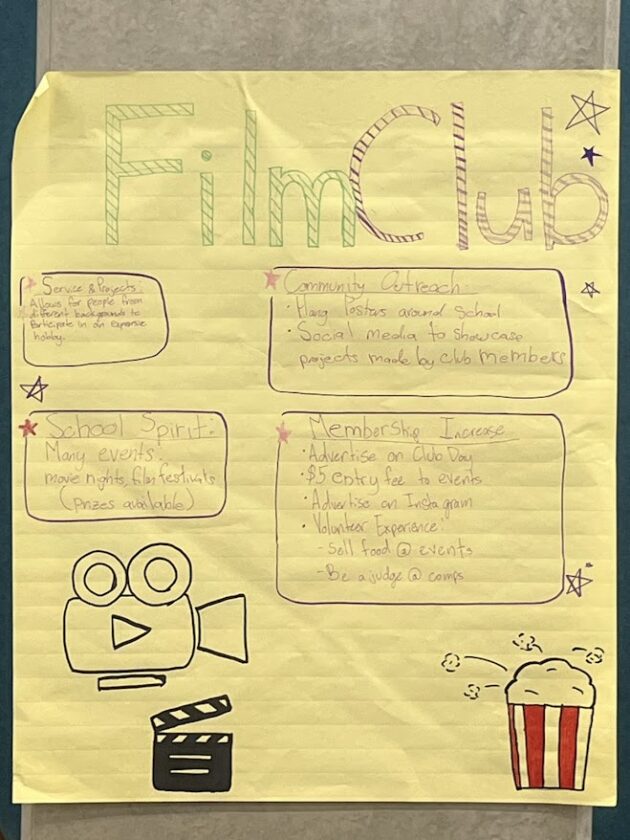 Film Club
Service & Projects:
Allows for people from
different backgrounds to
Participate in an expensive
hobby.
Community Outreach:
· Hang Posters around School
· Social media to showcase
projects made by club members
School Spirit:
Many events:
movie nights, film festivals
(prizes available)
Membership Increase
· Advertise on Club Day
· $5 entry fee to events
· Advertise on Instagram
· Volunteer Experience:
- Sell food @ events
- Be a judge @ comps